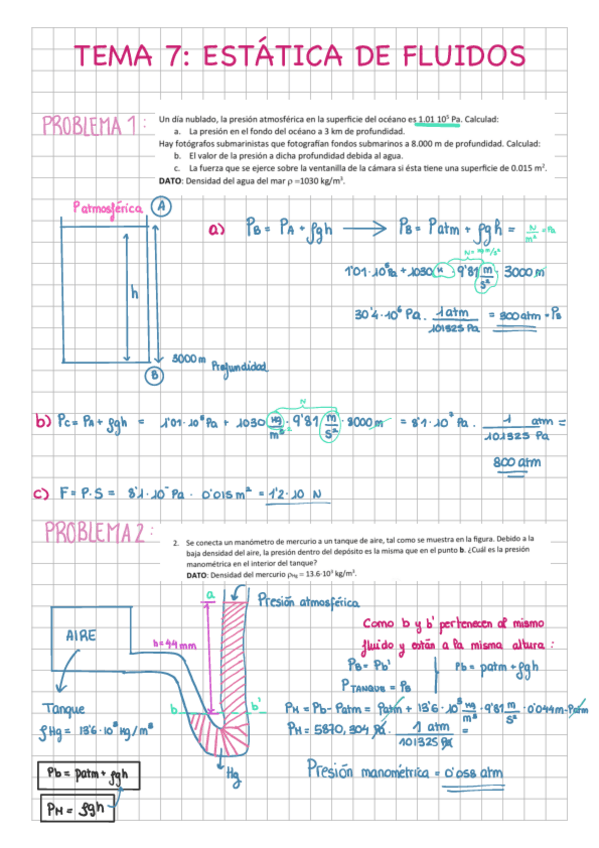 TEMA 7: ESTÁTICA DE FLUIDOS
PROBLEMA 1:
Un día nublado, la presión atmosférica en la superficie del océano es 1.01 10⁵ Pa. Calculad:
a. La presión en el fondo del océano a 3 km de profundidad.
Hay fotógrafos submarinistas que fotografían fondos submarinos a 8.000 m de profundidad. Calculad:
b. El valor de la presión a dicha profundidad debida al agua.
c. La fuerza que se ejerce sobre la ventanilla de la cámara si ésta tiene una superficie de 0.015 m².
DATO: Densidad del agua del mar ρ =1030 kg/m³.
Patmosférica A
h
3000 m Profundidad
B
a) PB = PA + ρgh → PB = Patm + ρgh = N/m² = Pa
1'01·10⁵Pa + 1030 · 9'81 m/s² · 3000 m
30'4·10⁶ Pa · 1 atm / 101325 Pa = 300 atm = PB
b) Pc = PA + ρgh = 1'01·10⁵ Pa + 1030 Kg/m³ · 9'81 m/s² · 8000 m = 8'1·10⁷ Pa · 1 atm / 101325 Pa =
N
800 atm
c) F = P·S = 8'1·10⁷ Pa · 0'015 m² = 1'2·10 N
PROBLEMA 2:
2. Se conecta un manómetro de mercurio a un tanque de aire, tal como se muestra en la figura. Debido a la
baja densidad del aire, la presión dentro del depósito es la misma que en el punto b. ¿Cuál es la presión
manométrica en el interior del tanque?
DATO: Densidad del mercurio ρHg = 13.6·10³ kg/m³.
a
Presión atmosférica
AIRE
h=44mm
b b'
Tanque
ρHg = 13'6·10³ Kg/m³
Hg
Pb = patm + ρgh
PM = ρgh
Como b y b' pertenecen al mismo
fluido y están a la misma altura:
PB = PB' Pb = patm + ρgh
PTANQUE = PB
PM = Pb - Patm = Patm + 13'6·10³ Kg/m³ · 9'81 m/s² · 0'044m - Patm
PM = 5870,304 Pa · 1 atm / 101325 Pa
Presión manométrica = 0'058 atm